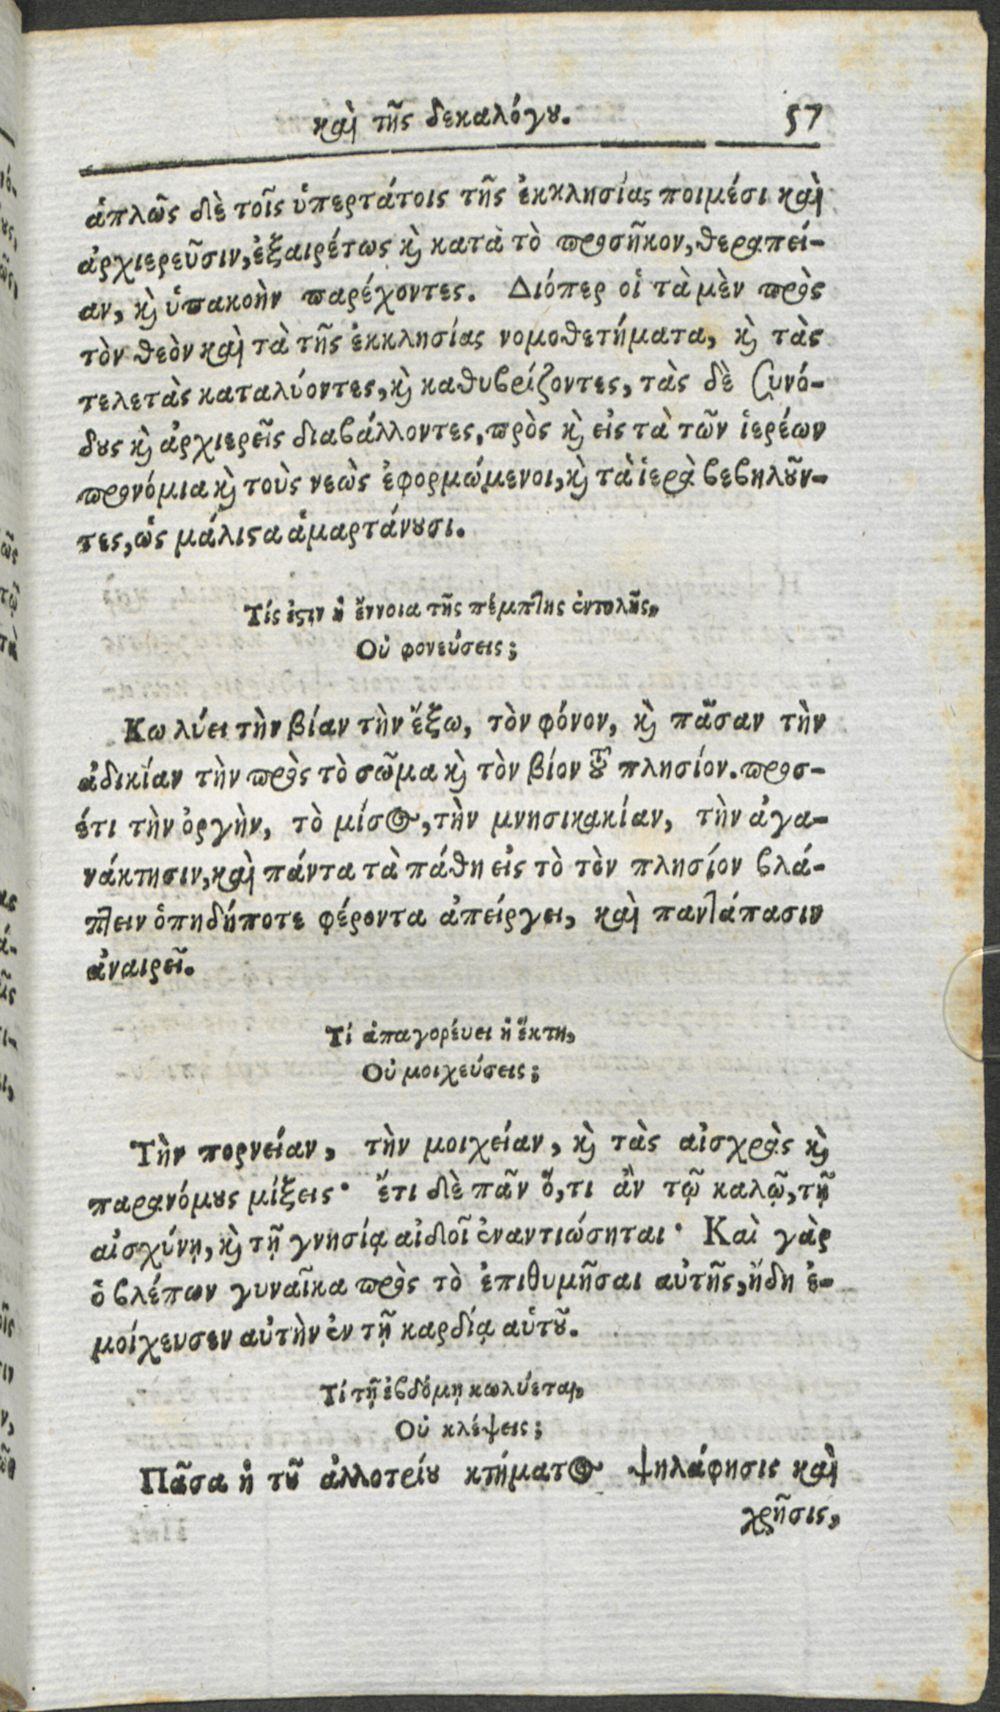 καὶ τῆς δεκαλόγȣ. 57
ἁπλῶς δὲ τοῖς ὑπερτάτοις τῆς ἐκκλησίας ποιμέσι καὶ
ἀρχιερεῦσιν, ἐξαιρέτως κ̀ κατὰ τὸ προσῆκον, θεραπεί-
αν, κ̀ ὑπακοὴν παρέχοντες. Διόπερ οἱ τὰ μὲν πρὸς
τὸν θεὸν καὶ τὰ τῆς ἐκκλησίας νομοθετήματα, κ̀ τὰς
τελετὰς καταλύοντες, κ̀ καθυβρίζοντες, τὰς δὲ συνό-
δȣς κ̀ ἀρχιερεῖς διαβάλλοντες, πρὸς κ̀ εἰς τὰ τῶν ἱερέων
προνόμια κ̀ τοὺς νεὼς ἐφορμώμενοι, κ̀ τὰ ἱερὰ βεβηλοῦν-
τες, ὡς μάλιϛα ἁμαρτάνȣσι.
Τίς ἐϛιν ἡ ἔννοια τῆς πέμπτης ἐντολῆς,
Οὐ φονεύσεις;
Κωλύει τὴν βίαν τὴν ἔξω, τὸν φόνον, κ̀ πᾶσαν τὴν
ἀδικίαν τὴν πρὸς τὸ σῶμα κ̀ τὸν βίον τοῦ πλησίον. προσ-
έτι τὴν ὀργὴν, τὸ μίσος, τὴν μνησικακίαν, τὴν ἀγα-
νάκτησιν, καὶ πάντα τὰ πάθη εἰς τὸ τὸν πλησίον βλά-
πτειν ὁπηδήποτε φέροντα ἀπείργει, καὶ παντάπασιν
ἀναιρεῖ.
Τί ἀπαγορέυει ἡ ἕκτη,
Οὐ μοιχεύσεις;
Τὴν πορνείαν, τὴν μοιχείαν, κ̀ τὰς αἰσχρὰς κ̀
παρανόμȣς μίξεις· ἔτι δὲ πᾶν ὅ, τι ἂν τῷ καλῷ, τῇ
αἰσχύνῃ, κ̀ τῇ γνησίᾳ αἰδοῖ ἐναντιώσηται· Καὶ γὰρ
ὁ βλέπων γυναῖκα πρὸς τὸ ἐπιθυμῆσαι αὐτῆς, ἤδη ἐ-
μοίχευσεν αὐτὴν ἐν τῇ καρδίᾳ αὑτȣ͂.
Τί τῇ ἑβδόμῃ κωλύεται,
Οὐ κλέψεις;
Πᾶσα ἡ τȣ͂ ἀλλοτρίȣ κτήματος ψηλάφησις καὶ
χρῆσις,